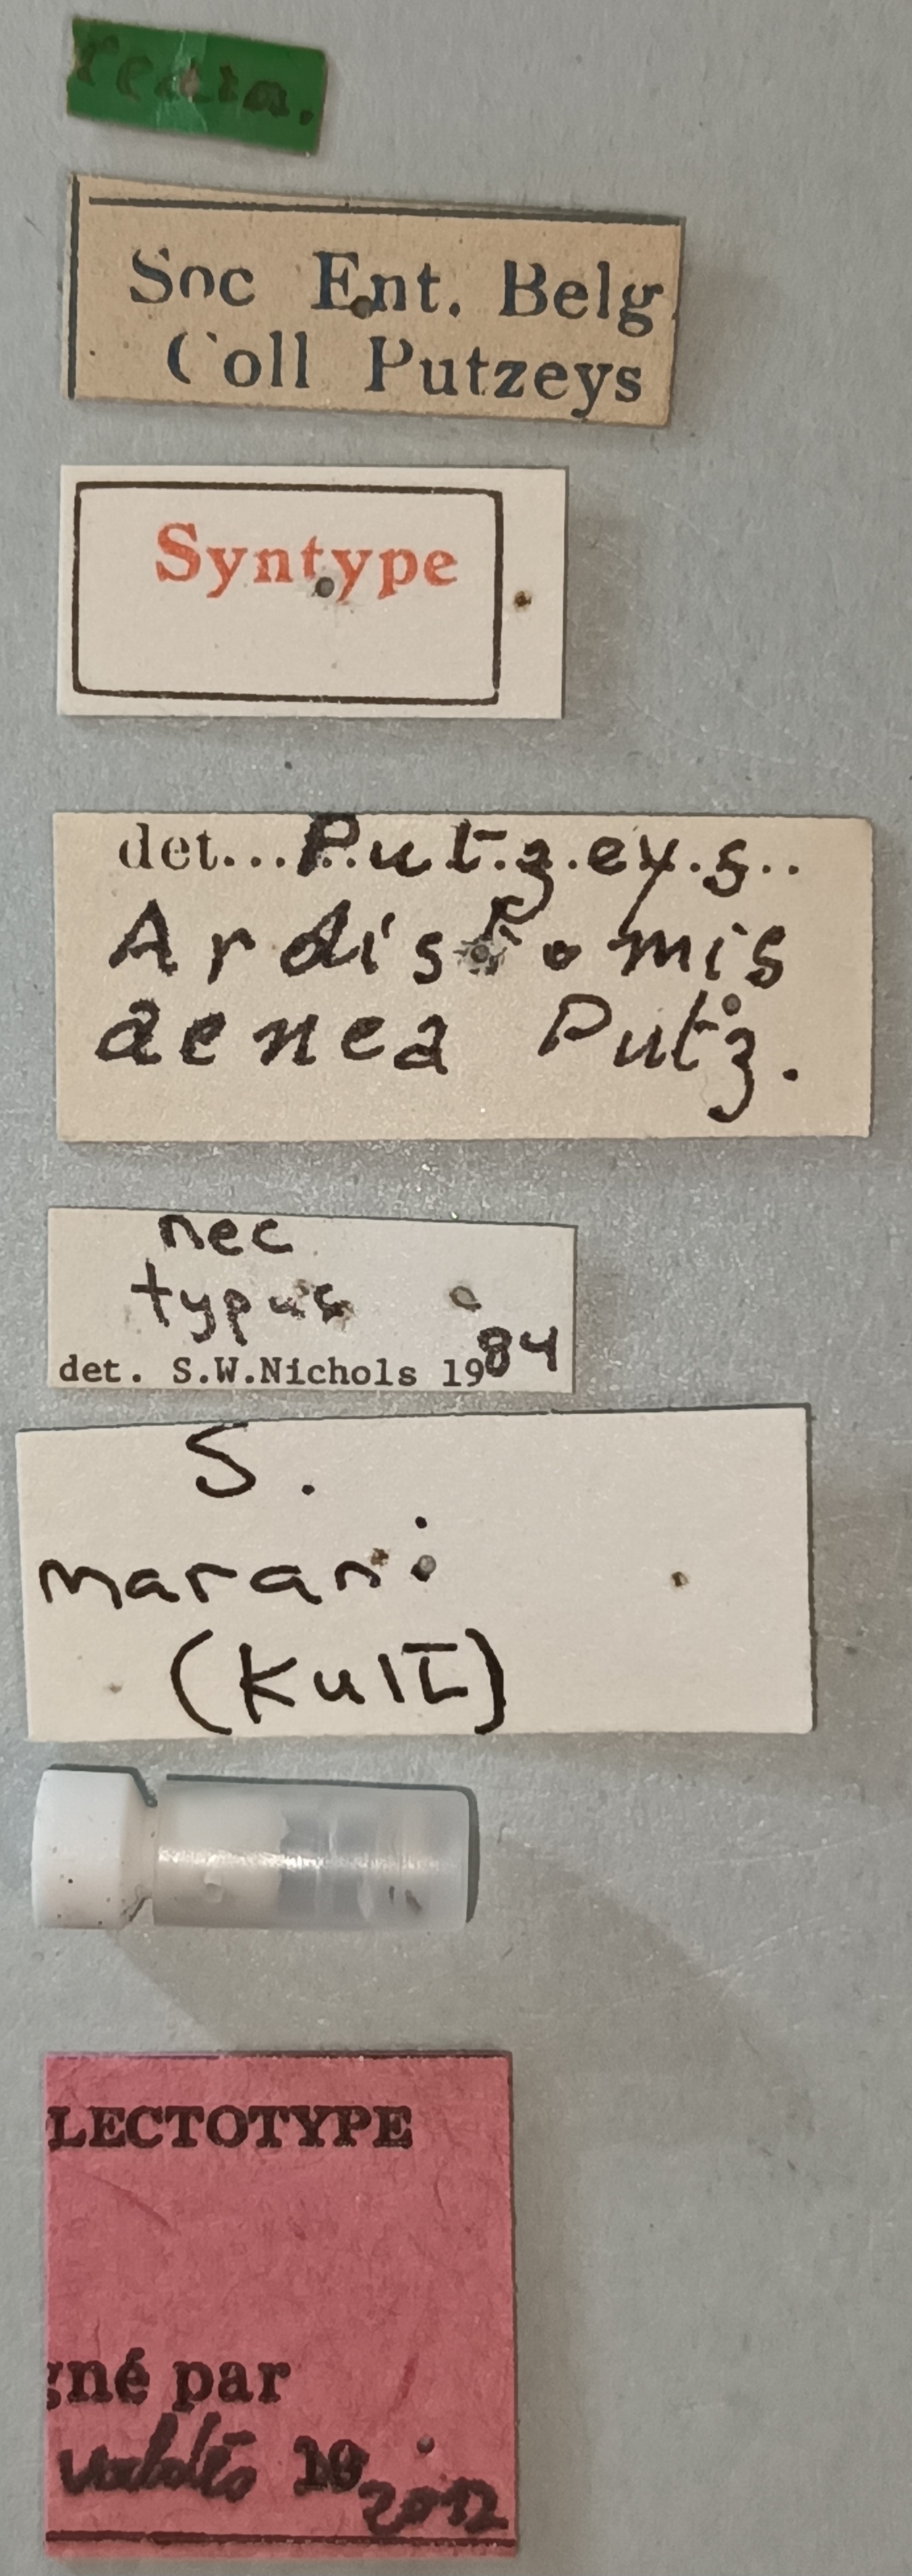 Soc Ent. Belg
Coll Putzeys
Syntype
det... Putzeys..
Ardistomis
aenea Putz.
nec
typus
det. S.W.Nichols 1984
S.
marani
(Kult)
LECTOTYPE
gné par
valdés 19 2012